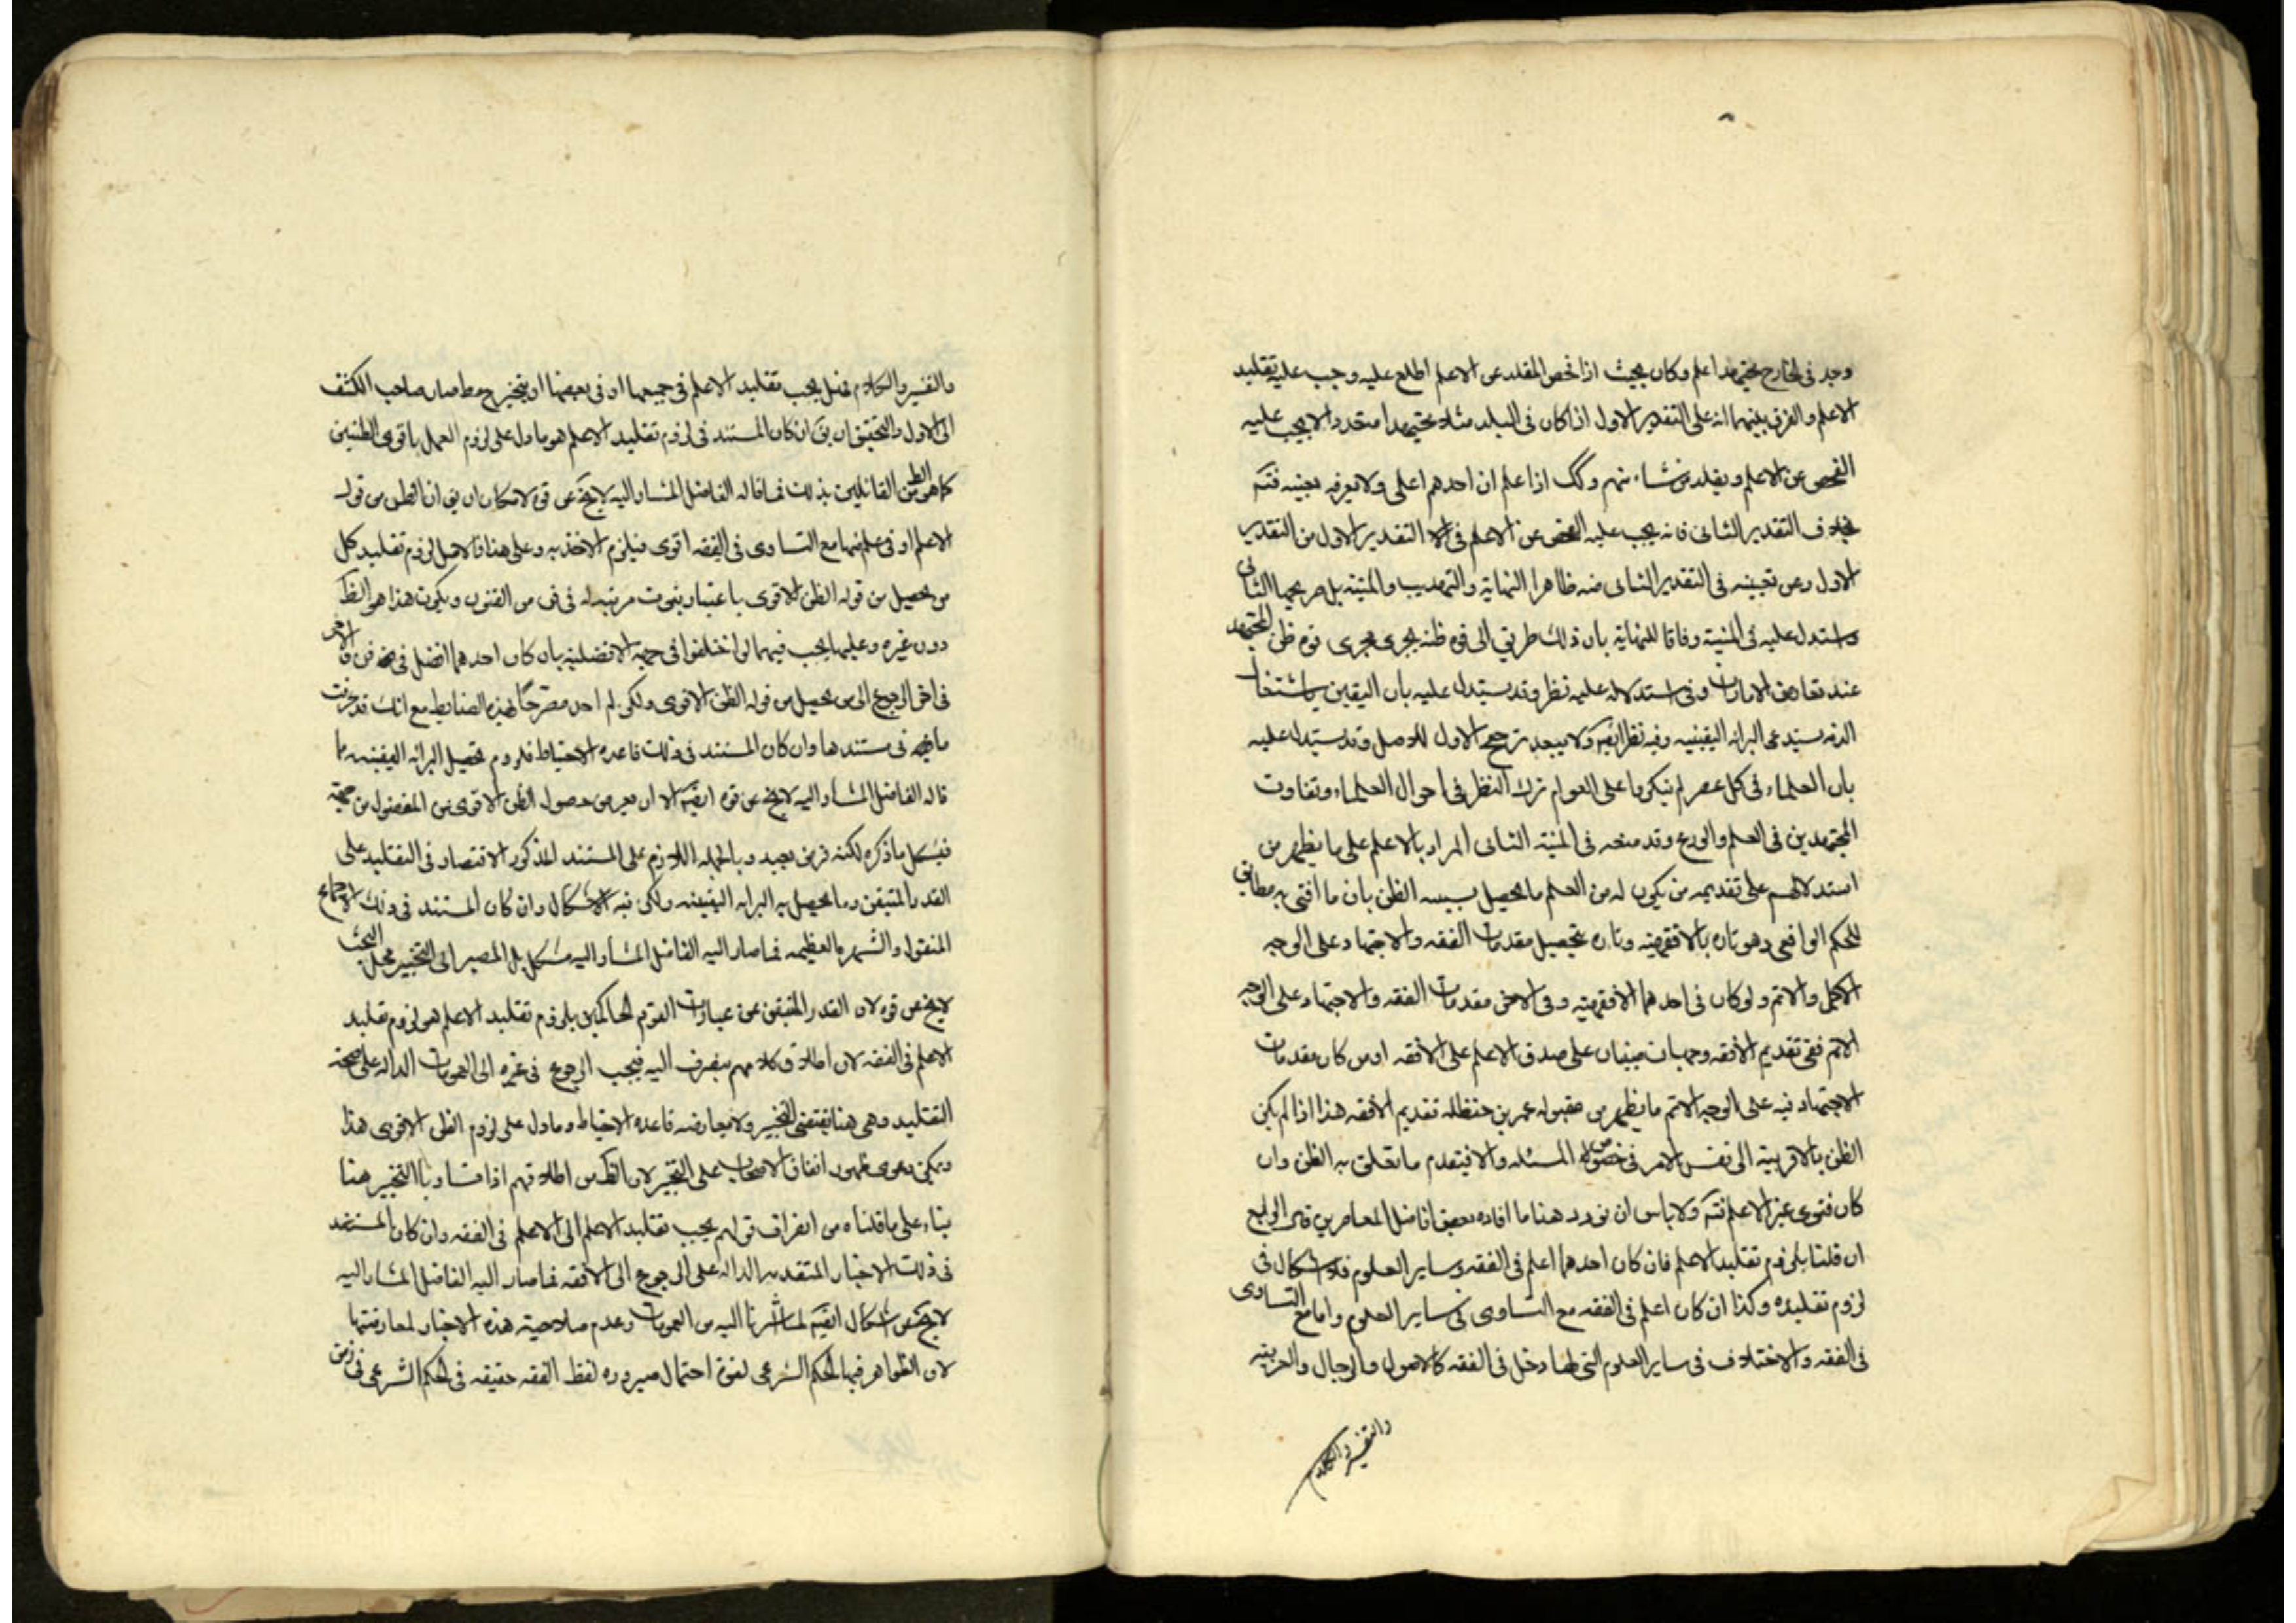 وجد فى الخارج مجتهدا اعلم وكان بحيث اذا فحص المقلد عن الاعلم اطلع عليه وجب عليه تقليد
الاعلم والفرق بينهما انه على التقدير الاول اذا كان فى البلد مثلا مجتهدا متعددا لا يجب عليه
الفحص عن الاعلم ويقلد من شاء منهم وكك اذا علم ان احدهم اعلى ولا يعرفه بعينه فتـﻪ
بخلاف التقدير الثانى فانه يجب عليه الفحص عن الاعلم فى الا التقدير الاول من التقدير
الاول وعن تعيينه فى التقدير الثانى منه ظاهر النهاية والتهذيب والمنية بل صريحها الثانى
واستدل عليه فى المنية وفاقا للنهاية بان ذلك طريق الى قوه ظنه يجرى مجرى قوه ظن المجتهد
عند تعارض الامارات وفى استدلاله عليه نظر وقد يستدل عليه بان اليقين باشتغال
الذمه يستدعى البرائه اليقينيه وفيه نظر ايضا ولا يبعد ترجيح الاول للاصل وقد يستدل عليه
بان العلماء فى كل عصر لم ينكروا على العوام ترك النظر فى احوال العلماء وتفاوت
المجتهدين فى العلم والورع وقد منعه فى المنية الثانى المراد بالاعلم على ما يظهر من
استدلالهم على تقديمه من يكون له من العلم ما يحصل بسببه الظن بان ما افتى به مطابق
للحكم الواقعى وهو تاره بالافقهيه وتاره بتحصيل مقدمات الفقه والاجتهاد على الوجه
الاكمل والاتم ولو كان فى احدهما الافقهيه وفى الاخر مقدمات الفقه والاجتهاد على الوجه
الاتم ففى تقديم الافقه وجهان مبنيان على صدق الاعلم على الافقه او من كان مقدمات
الاجتهاد فيه على الوجه الاتم ما يظهر من مقبوله عمر بن حنظله تقديم الافقه هذا اذا لم يكن
الظن بالاقربية الى نفس الامر فى خصوص المسئله والا فيقدم ما تعلق به الظن وان
كان فتوى غير الاعلم فتـﻪ ولا باس ان نورد هنا ما افاده بعض افاضل المعاصرين قال الرابع
ان قلنا بلزوم تقليد الاعلم فان كان احدهما اعلم فى الفقه وساير العلوم فلا اشكال فى
لزوم تقليده وكذا ان كان اعلم فى الفقه مع التساوى فى ساير العلوم واما مع التساوى
فى الفقه والاختلاف فى ساير العلوم التى لها دخل فى الفقه كالاصول والرجال والعربيه
والتفسير والكلام
والتفسير والكلام فهل يجب تقليد الاعلم فى جميعها او فى بعضها او يتخير مط صار صاحب الكشف
الى الاول والتحقيق ان يق ان كان المستند فى لزوم تقليد الاعلم هو ما دل على لزوم العمل باقوى الظنين
كما هو الظ من القائلين بذلك فما قاله الفاضل المشار اليه لا يخ عن قوه لامكان ان يق ان الظن من قول
الاعلم او فى علم منها مع التساوى فى الفقه اقوى فيلزم الاخذ به وعلى هذا فالاصل لزوم تقليد كل
من يحصل من قوله الظن الاقوى باعتبار ثبوت مرتبه له فى فن من الفنون ويكون هذا هو الظ
دون غيره وعليها يجب فيهما لو اختلفوا فى جهة الافضلية بان كان احدهما افضل فى فن والاخر
فى اخر الرجوع الى من يحصل من قوله الظن الاقوى ولكن لم اجد مصرحا بهذه الضابط مع انك قد عرفت
ما فيه فى مستندها وان كان المستند فى ذلك قاعده الاحتياط فلزوم تحصيل البرائه اليقينيه ما
قاله الفاضل المشار اليه لا يخ عن قوه ايضا الا ان يعرض حصول الظن الاقوى من المفضول من جهة
فيشكل ما ذكره لكنه فرض بعيد وبالجمله اللازم على المستند المذكور الاقتصار فى التقليد على
القدر المتيقن وما يحصل به البرائه اليقينيه ولكن فيه الاشكال وان كان المستند فى ذلك الاجماع
المنقول والشهره العظيمه فما صار اليه الفاضل المشار اليه مشكل بل المصير الى التخيير محل البحث
لا يخ عن قوه لان القدر المتيقن من عبارات القوم الحاكمين بلزوم تقليد الاعلم هو لزوم تقليد
الاعلم فى الفقه لان اطلاق كلامهم ينصرف اليه فيجب الرجوع فى غيره الى العمومات الداله على صحة
التقليد وهى هنا يقتضى التخيير ولا يعارضه قاعده الاحتياط وما دل على لزوم الظن الاقوى هذا
ويمكن دعوى ظهور اتفاق الاصحاب على التخيير لان الظ من اطلاقهم اذا تساويا التخيير هنا
بناء على ما قلناه من انصراف قولهم يجب تقليد الاعلم الى الاعلم فى الفقه وان كان المستند
فى ذلك الاخبار المتقدمه الداله على الرجوع الى الافقه فما صار اليه الفاضل المشار اليه
لا يخ عن اشكال ايضا لما اشرنا اليه من العمومات وعدم صلاحية هذه الاخبار لمعارضتها
لان الظواهر فيها الحكم الشرعى لقوة احتمال صيروره لفظ الفقه حقيقه فى الحكم الشرعى فى زمن